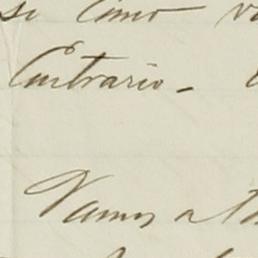 se como
Contrario_
Vamos a